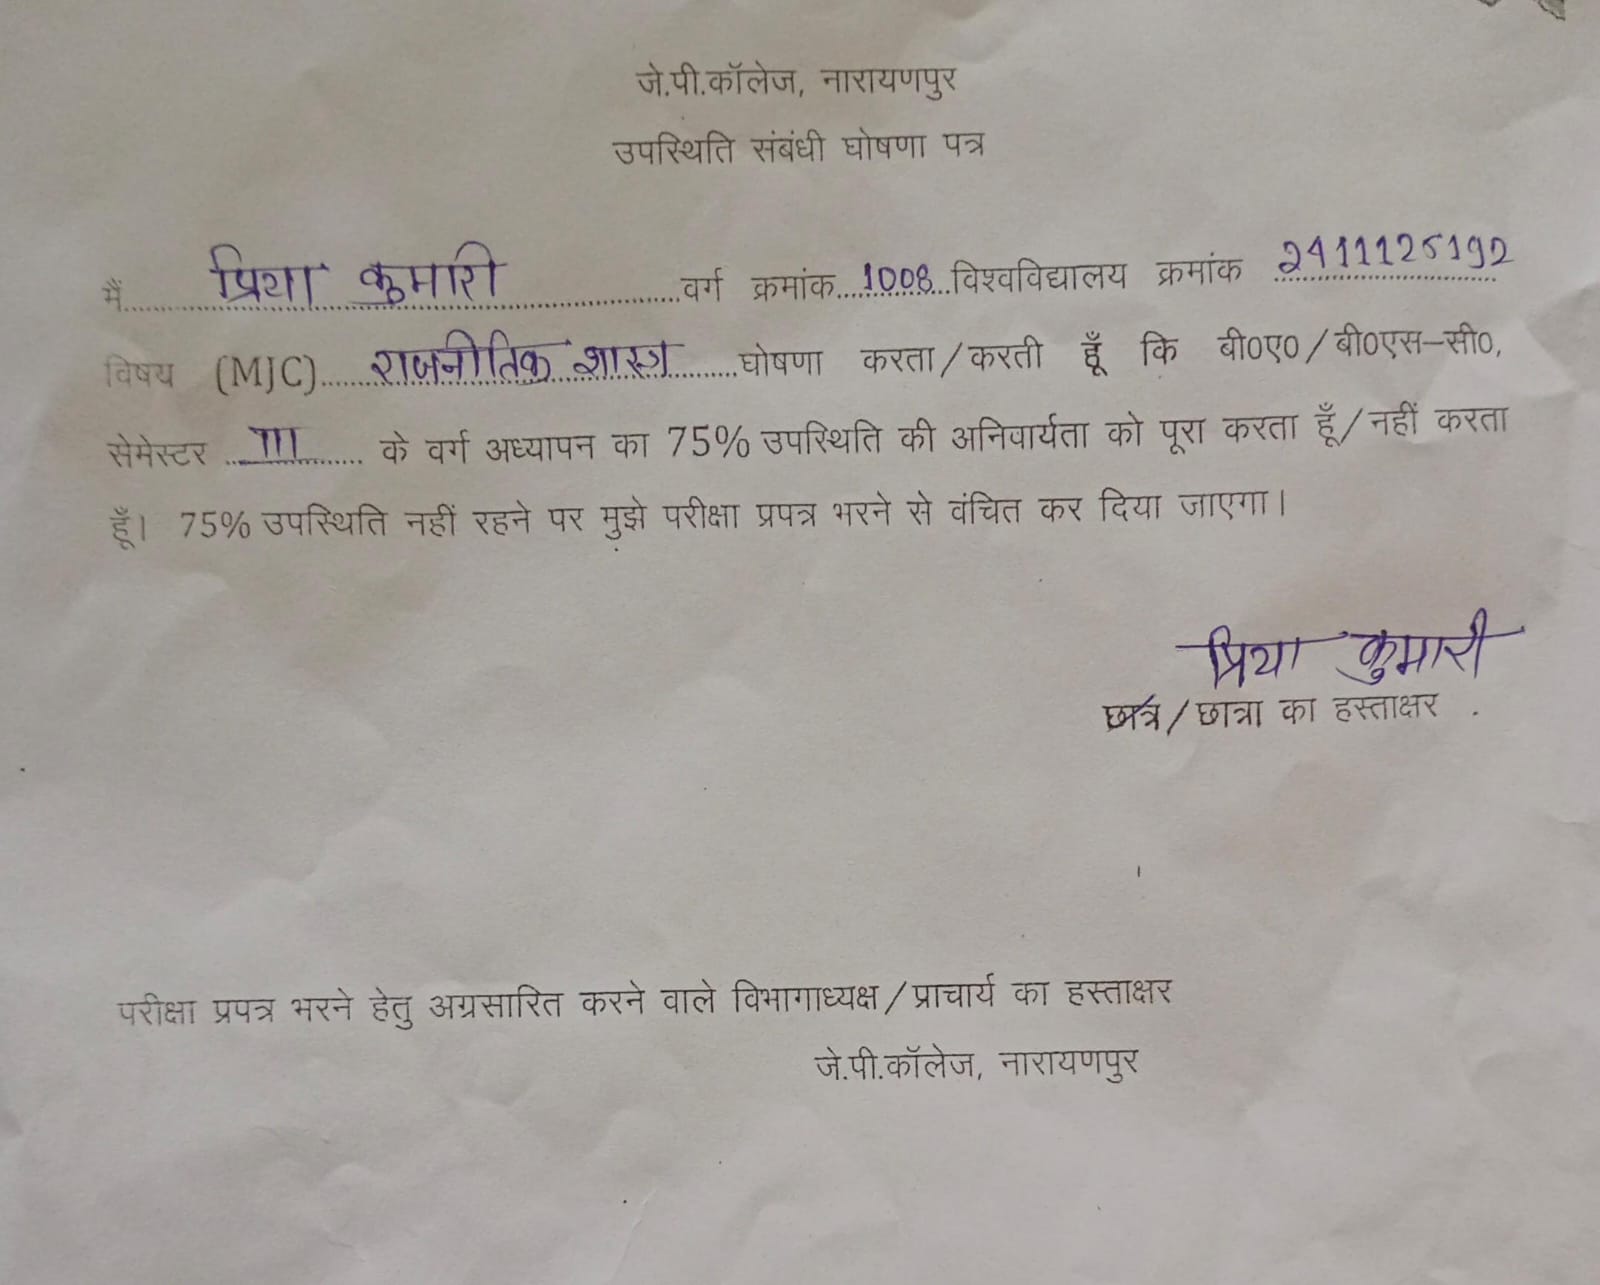 जे.पी.कॉलेज, नारायणपुर
उपस्थिति संबंधी घोषणा पत्र
मैं....प्रिया कुमारी....वर्ग क्रमांक....1008...विश्वविद्यालय क्रमांक 2411125192
विषय (MJC)....राजनीतिक शास्त्र....घोषणा करता/करती हूँ कि बी०ए०/बी०एस–सी०,
सेमेस्टर ...III... के वर्ग अध्यापन का 75% उपस्थिति की अनिवार्यता को पूरा करता हूँ/नहीं करता
हूँ। 75% उपस्थिति नहीं रहने पर मुझे परीक्षा प्रपत्र भरने से वंचित कर दिया जाएगा।
प्रिया कुमारी
छात्र/छात्रा का हस्ताक्षर .
परीक्षा प्रपत्र भरने हेतु अग्रसारित करने वाले विभागाध्यक्ष/प्राचार्य का हस्ताक्षर
जे.पी.कॉलेज, नारायणपुर